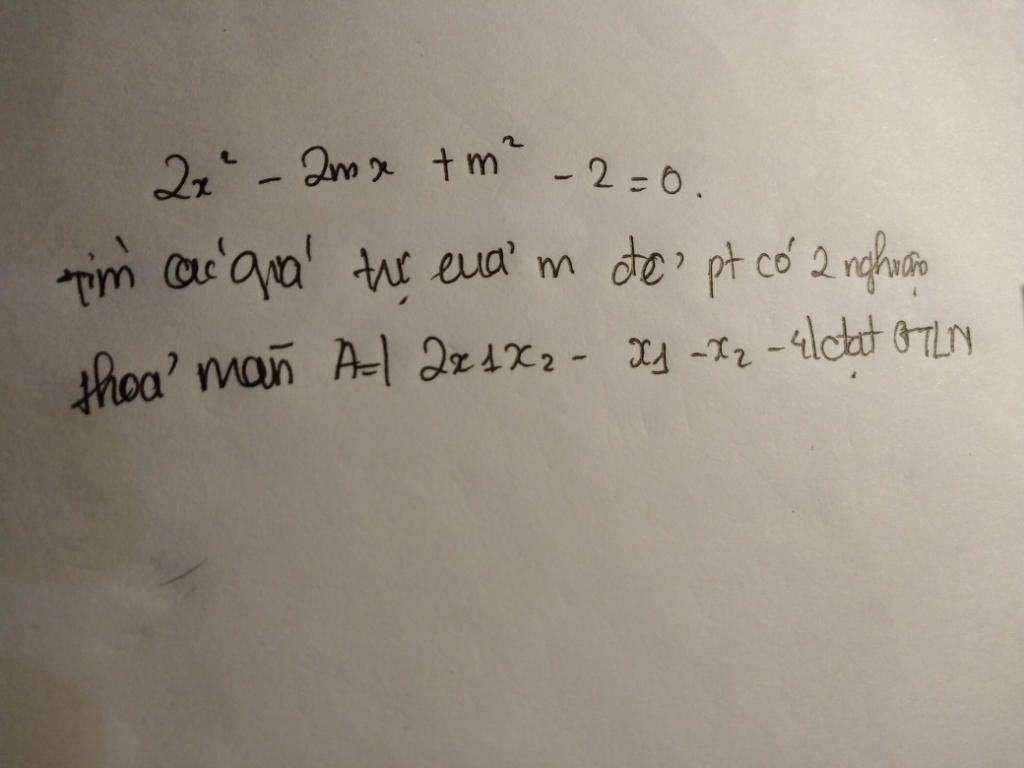 2x² - 2mx + m² - 2 = 0.
tìm các giá trị của m để pt có 2 nghiệm
thoả mãn A=| 2x1x2 - x1 - x2 - 4| đạt GTLN